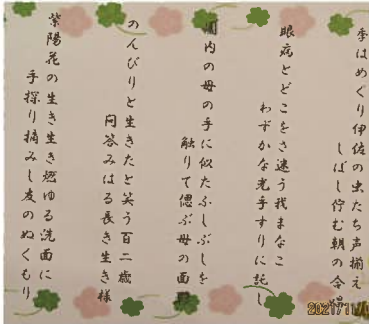 季はめぐり伊佐の虫たち声揃え
しばし佇む朝の合唱
眼病とどこをさ迷う我まなこ
わずかな光手すりに託し
園内の母の手に似たふしぶしを
触りて偲ぶ母の面
のんびりと生きたと笑う百二歳
問答みはる長き生き様
紫陽花の生き生き燃ゆる洗面に
手探り摘みし友のぬくもり
2021/11/